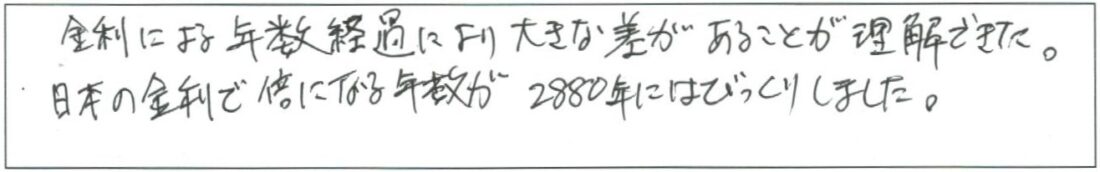 金利による年数経過により大きな差があることが理解できた。
日本の金利で倍になる年数が2880年にはびっくりしました。